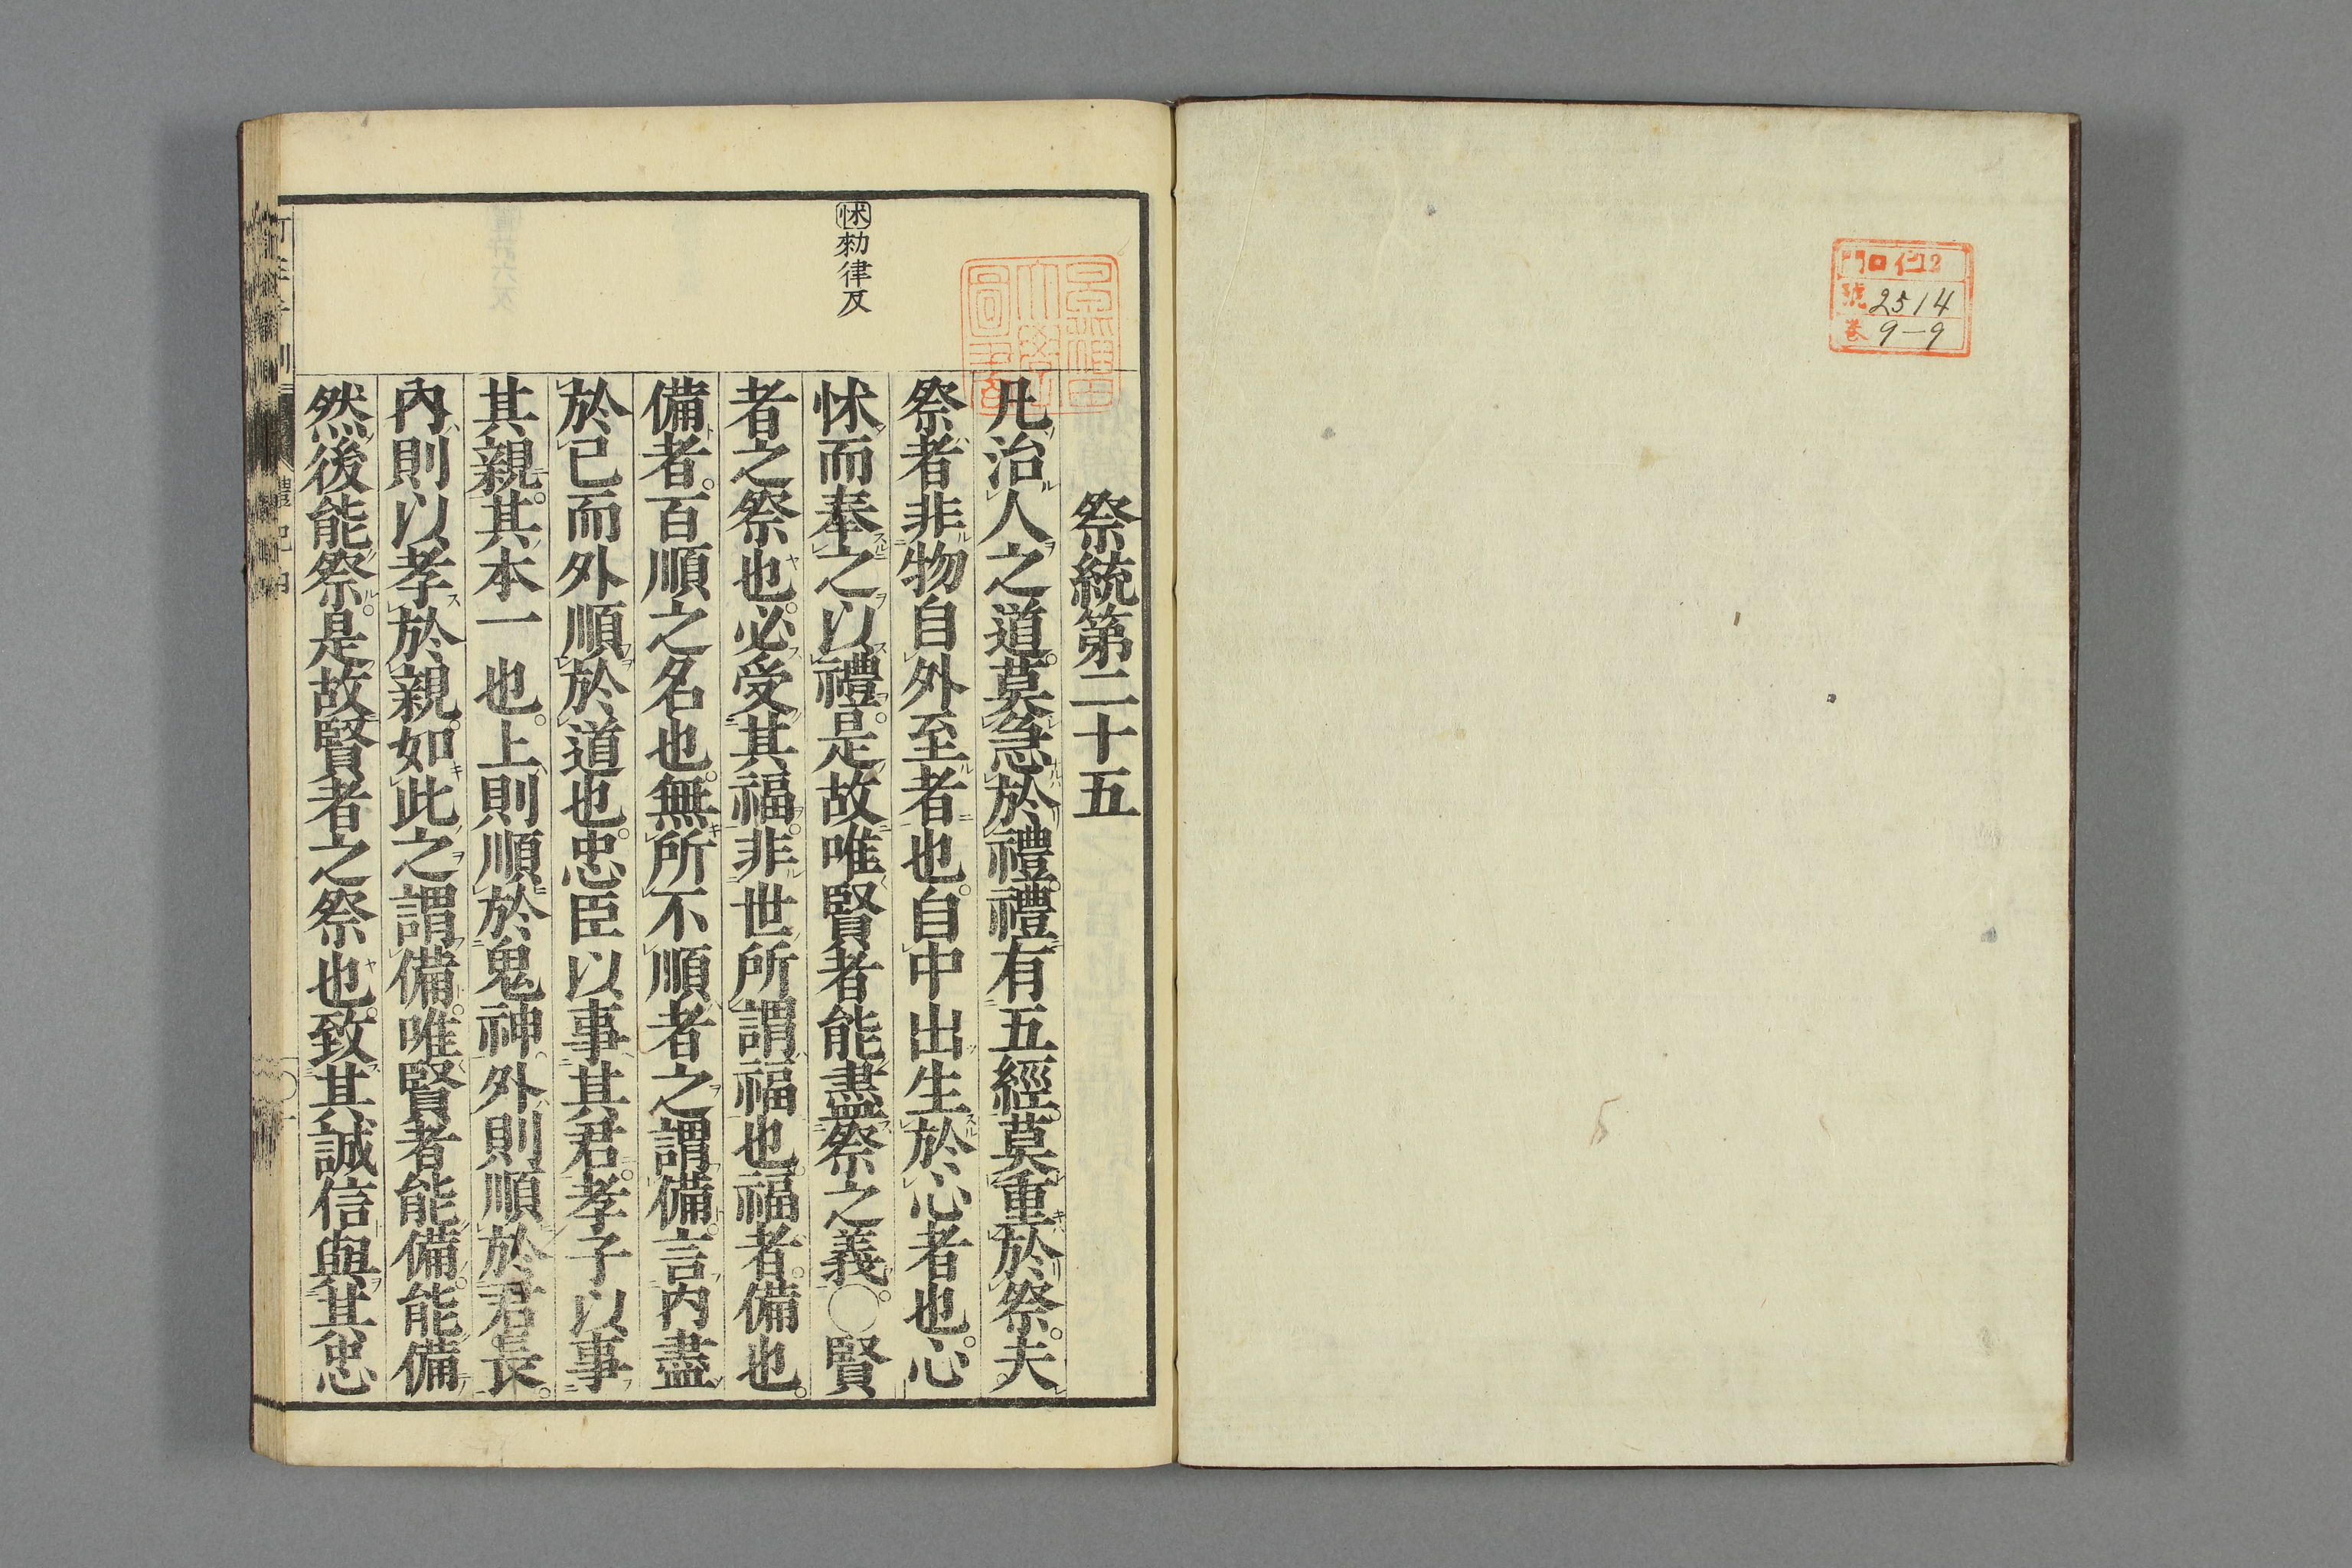 門 ロ 仁 12
號 2514
巻 9-9
祭統第二十五
凡治人之道。莫急於禮。禮有五經。莫重於祭。夫
祭者非物自外至者也。自中出生於心者也。心
怵而奉之以禮。是故唯賢者能盡祭之義。○賢
者之祭也。必受其福。非世所謂福也。福者。備也。
備者。百順之名也。無所不順者之謂備。言內盡
於已而外順於道也。忠臣以事其君。孝子以事
其親。其本一也。上則順於鬼神。外則順於君長。
內則以孝於親。如此之謂備。唯賢者能備。能備
然後能祭。是故賢者之祭也。致其誠信與其忠
怵勑律反